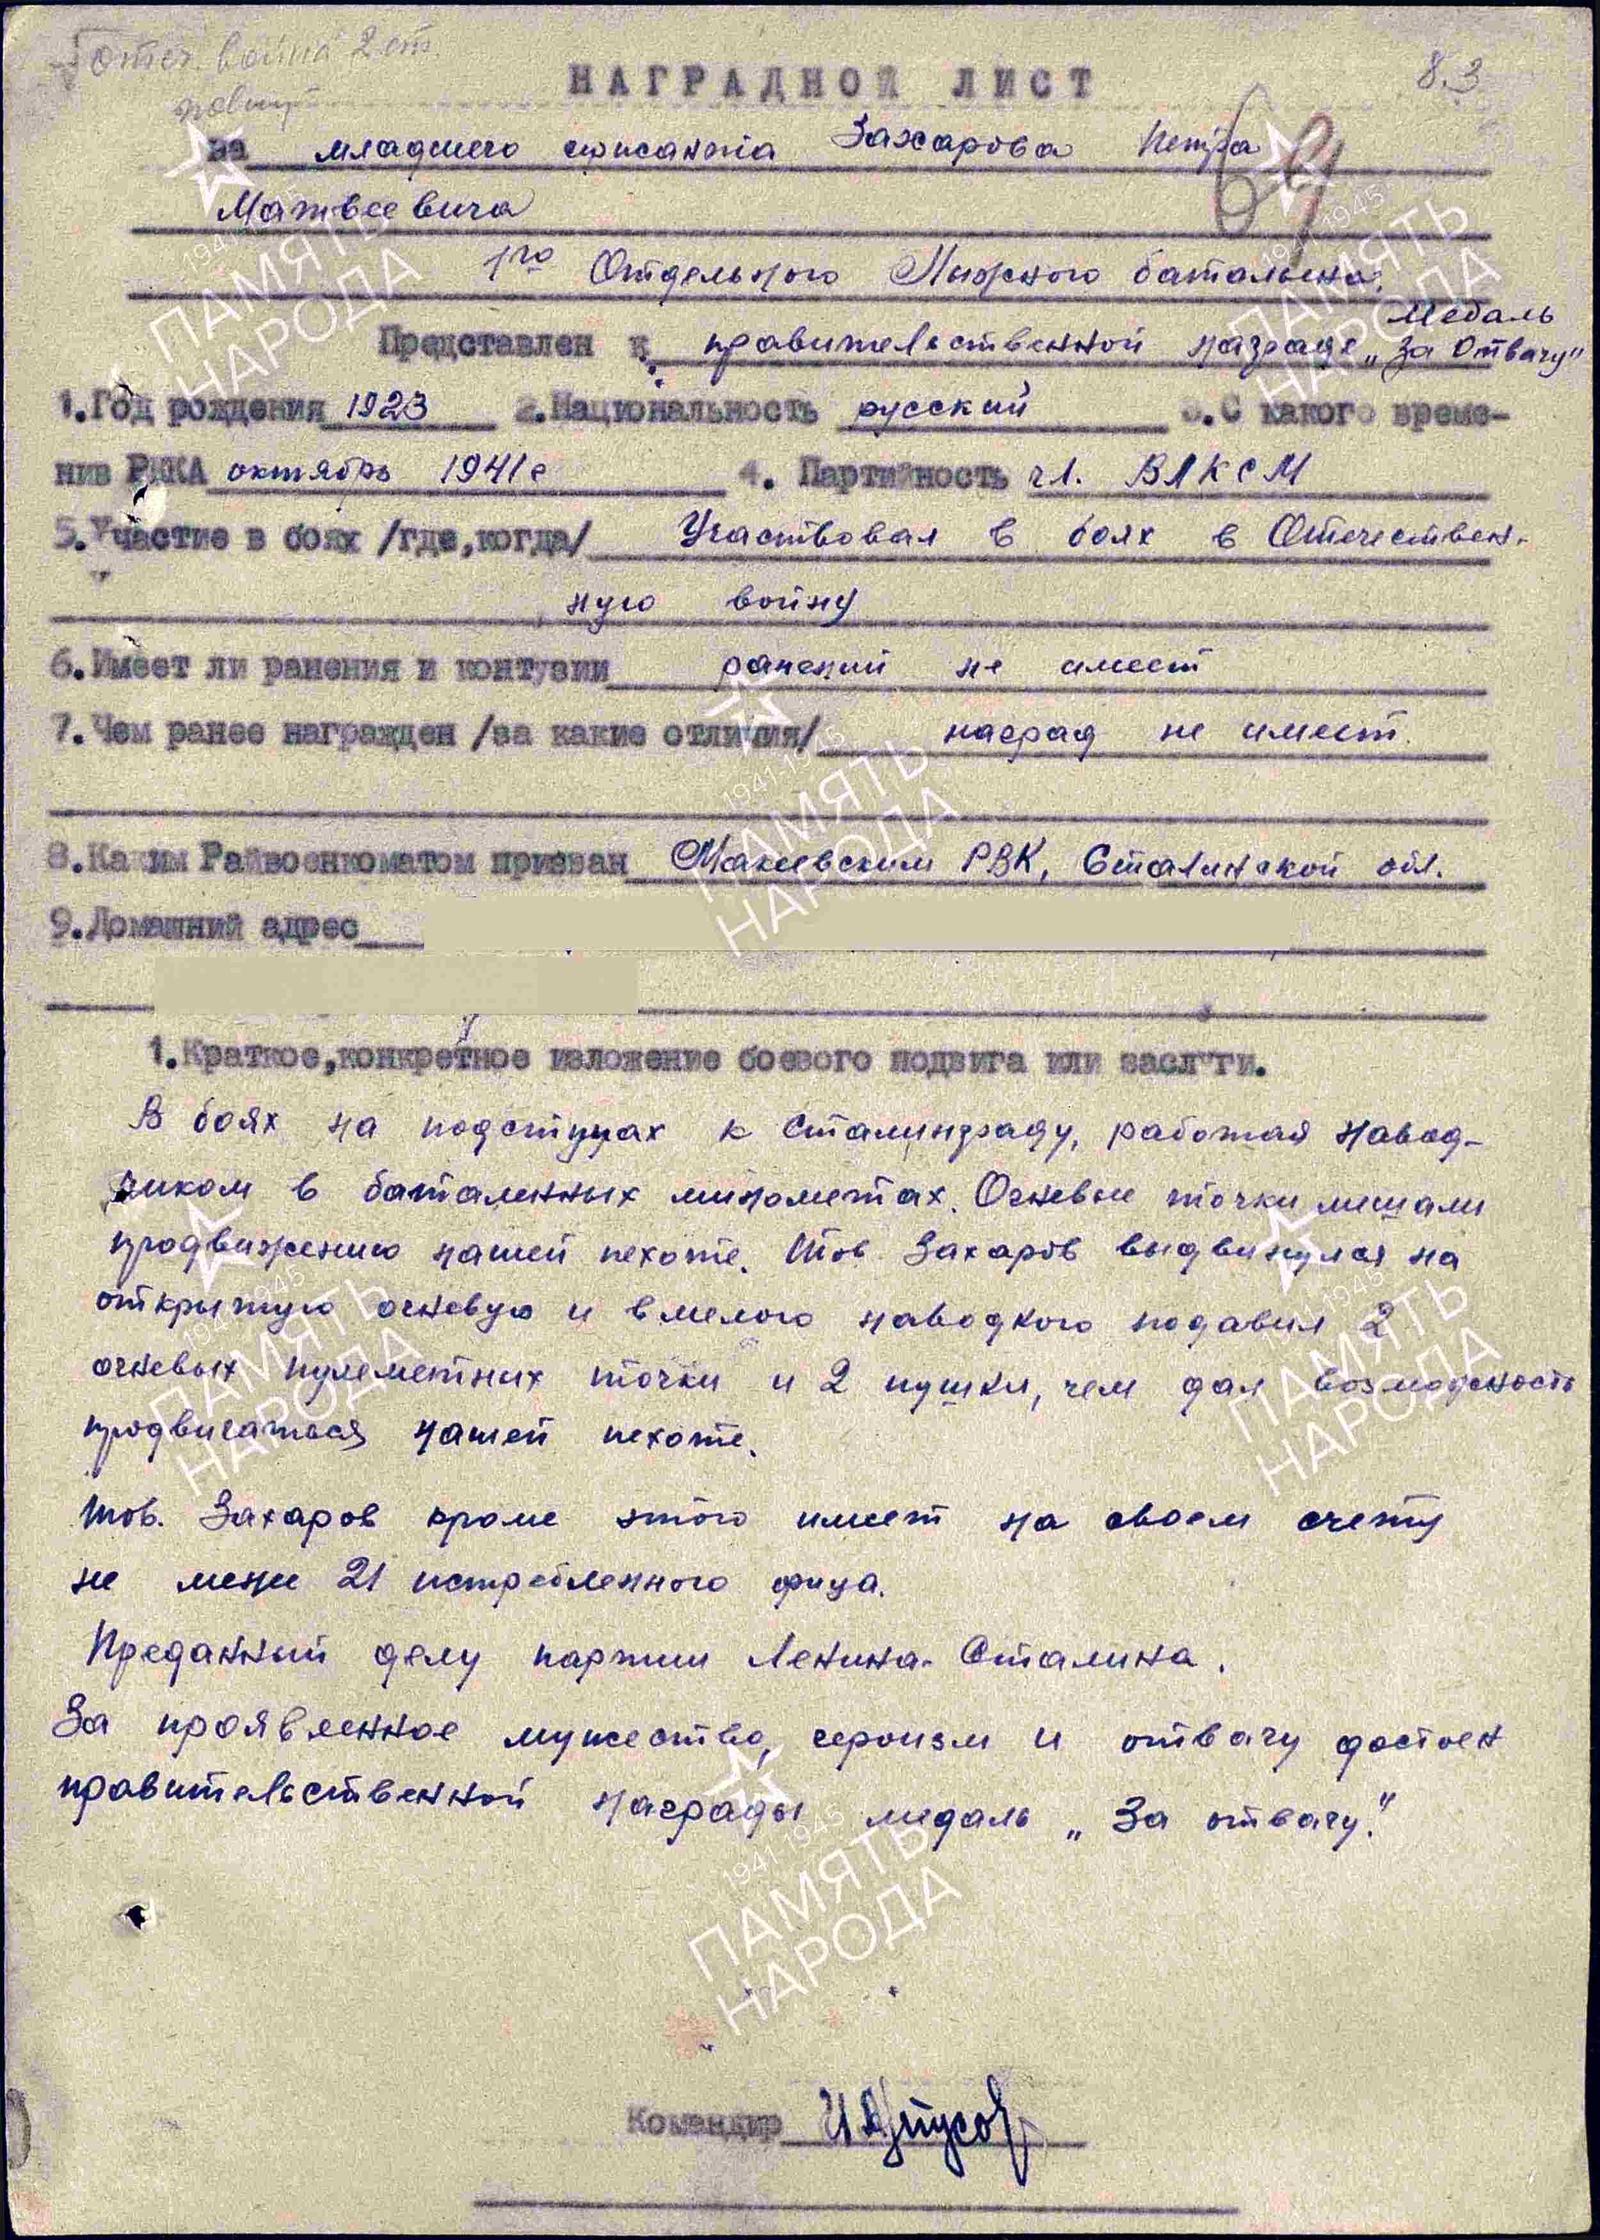 Отеч. война 2 ст.
8.3
НАГРАДНОЙ ЛИСТ
69
на младшего сержанта Захарова Петра
Матвеевича
1го Отдельного Лыжного батальона.
Медаль
Представлен к правительственной награде „За Отвагу"
1.Год рождения 1923 2.Национальность русский 3.С какого време-
нив РККА октябрь 1941г 4. Партийность чл. ВЛКСМ
5.Участие в боях /где,когда/ Участвовал в боях в Отечествен-
ную войну
6.Имеет ли ранения и контузии ранений не имеет
7.Чем ранее награжден /за какие отличия/ наград не имеет.
8.Каким Райвоенкоматом призван Макеевским РВК, Сталинской обл.
9.Домашний адрес
1.Краткое,конкретное изложение боевого подвига или заслуги.
В боях на подступах к Сталинграду, работая навод-
чиком в баталинных минометах. Огневые точки мешали
продвижению нашей пехоте. Тов. Захаров выдвинулся на
открытую огневую и вмелою наводкою подавил 2
огневых пулеметных точки и 2 пушки, чем дал возможность
продвигаться нашей пехоте.
Тов. Захаров кроме этого имеет на своем счету
не мение 21 истребленного фрица.
Преданный делу партии Ленина-Сталина.
За проявленное мужество, героизм и отвагу достоен
правительственной награды медаль „За отвагу."
Командир
1941-1945
ПАМЯТЬ
НАРОДА
1941-1945
ПАМЯТЬ
НАРОДА
1941-1945
ПАМЯТЬ
НАРОДА
1941-1945
ПАМЯТЬ
НАРОДА
1941-1945
ПАМЯТЬ
НАРОДА
1941-1945
ПАМЯТЬ
НАРОДА